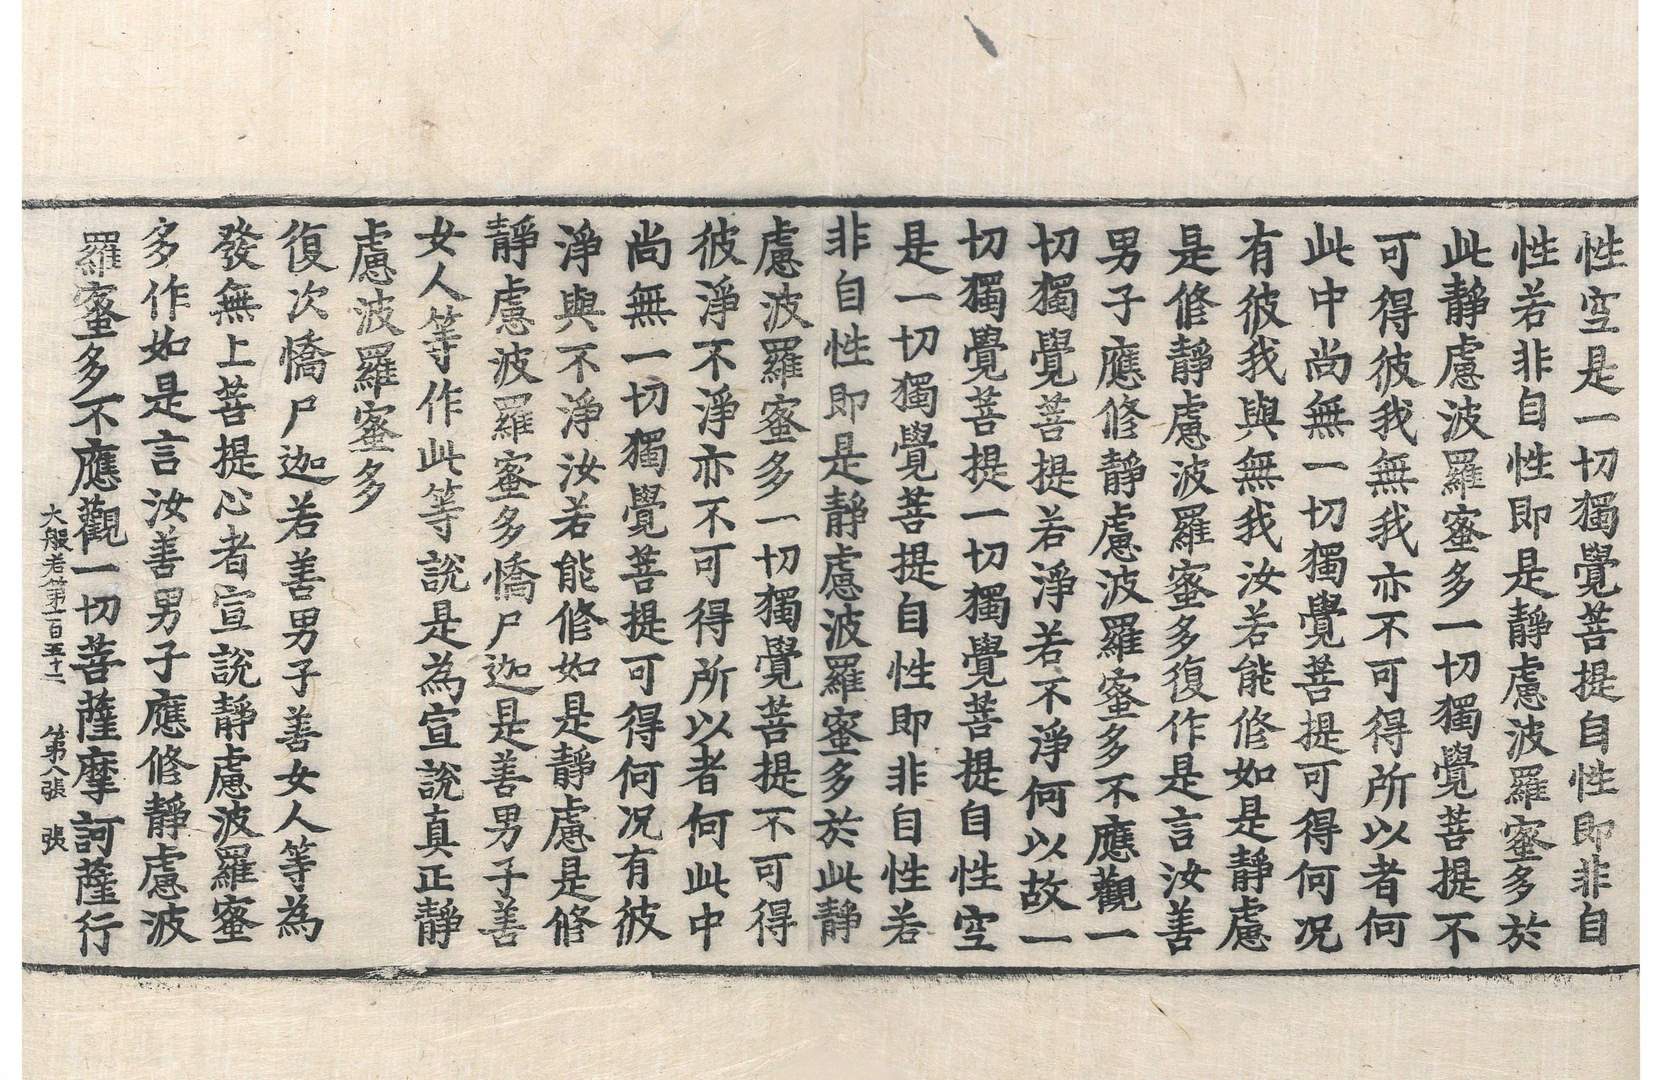 性空是一切獨覺菩提自性即非自
性若非自性即是靜慮波羅蜜多於
此靜慮波羅蜜多一切獨覺菩提不
可得彼我無我亦不可得所以者何
此中尚無一切獨覺菩提可得何况
有彼我與無我汝若能修如是靜慮
是修靜慮波羅蜜多復作是言汝善
男子應修靜慮波羅蜜多不應觀一
切獨覺菩提若淨若不淨何以故一
切獨覺菩提一切獨覺菩提自性空
是一切獨覺菩提自性即非自性若
非自性即是靜慮波羅蜜多於此靜
慮波羅蜜多一切獨覺菩提不可得
彼淨不淨亦不可得所以者何此中
尚無一切獨覺菩提可得何况有彼
淨與不淨汝若能修如是靜慮是修
靜慮波羅蜜多憍尸迦是善男子善
女人等作此等說是為宣說真正靜
慮波羅蜜多
復次憍尸迦若善男子善女人等為
發無上菩提心者宣說靜慮波羅蜜
多作如是言汝善男子應修靜慮波
羅蜜多不應觀一切菩薩摩訶薩行
大般若第一百五十二 第八張 張